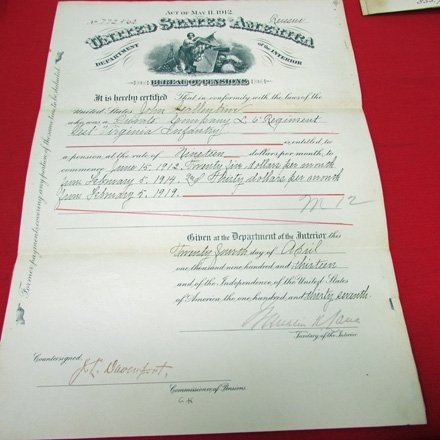 ACT OF MAY 11, 1912.
Reissue
UNITED STATES OF AMERICA
DEPARTMENT of the INTERIOR
BUREAU OF PENSIONS
It is hereby certified That in conformity with the laws of the
United States John
who was a Private Company L, 6" Regiment
West Virginia Infantry
is entitled to
a pension at the rate of Nineteen dollars per month, to
commence June 15, 1912, Twenty five dollars per month
from February 5, 1914, and Thirty dollars per month
from February 5, 1919.
M 12
Given at the Department of the Interior this
Twenty fourth day of April
one thousand nine hundred and thirteen
and of the Independence of the United States
of America the one hundred and thirty seventh.
Franklin K Lane
Secretary of the Interior.
Countersigned,
J. L. Davenport,
Commissioner of Pensions
Former payments covering any portion of the same time to be deducted.